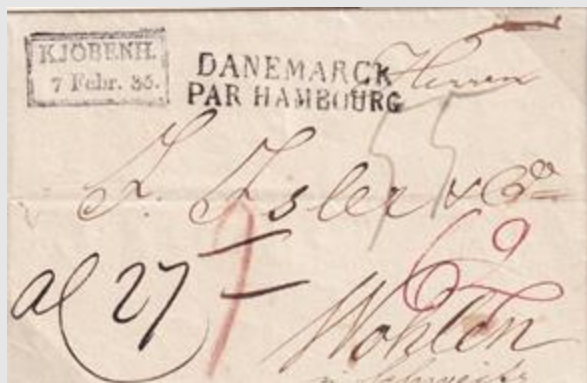 KJÖBENH.
7 Febr. 36.
DANEMARCK
PAR HAMBOURG
Herren
J. Isler & Co
al 27
69
Wohlen